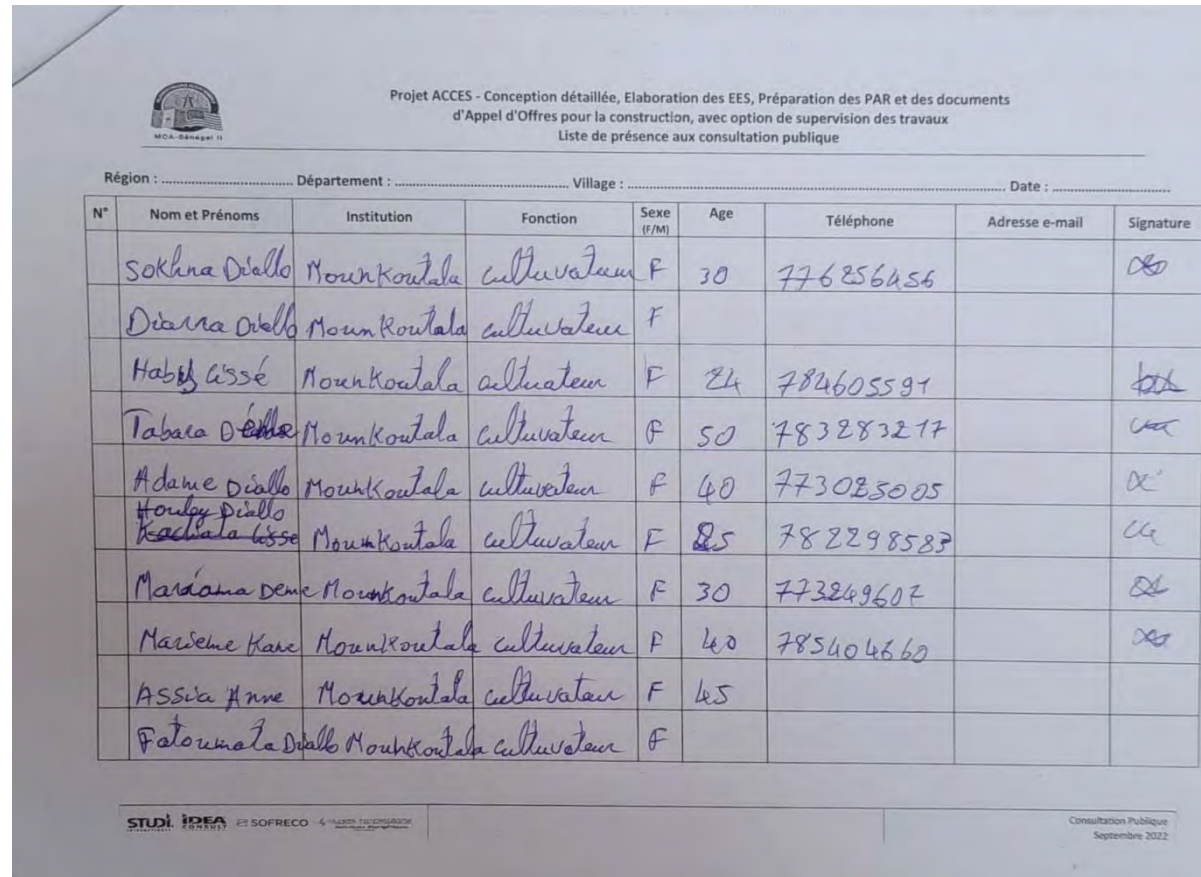 MCA-Sénégal II
Projet ACCES - Conception détaillée, Elaboration des EES, Préparation des PAR et des documents
d'Appel d'Offres pour la construction, avec option de supervision des travaux
Liste de présence aux consultation publique
Région : ................................. Département : ........................................... Village : ............................................................................................... Date : .............................
N° Nom et Prénoms Institution Fonction Sexe (F/M) Age Téléphone Adresse e-mail Signature
Sokhna Diallo Mounkoutala cultuvateur F 30 776256456
Diarra Diallo Mounkoutala cultuvateur F
Cissé Mounkoutala F 24 784605591
Tabara Mounkoutala cultuvateur F 50 783283217
Adame Diallo Mounkoutala cultuvateur F 40 773083005
Houley Diallo
Mounkoutala cultuvateur F 25 782298583
Mariama Deme Mounkoutala cultuvateur F 30 773249607
Marieme Kane Mounkoutala cultuvateur F 40 785404660
Assia Anne Mounkoutala cultuvateur F 45
Fatoumata Diallo Mounkoutala cultuvateur F
STUDI IDEA CONSULT SOFRECO
Consultation Publique
Septembre 2022